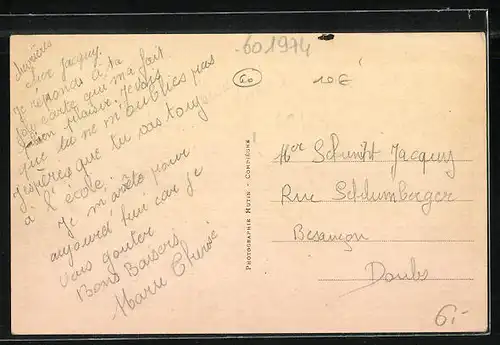 601974
60
10€
Cher Jacquy.
Je réponds à ta
carte qui m'a fait
bien plaisir. Je vois
que tu ne m'oublies pas
J'espères que tu vas toujours
à l'école.
Je m'arrête pour
aujourd'hui car je
vais gouter
Bons Baisers
PHOTOGRAPHIE MUTIN - COMPIÈGNE
Mer Schmitt Jacquy
Rue Schlumberger
Besançon
Doubs
6.-